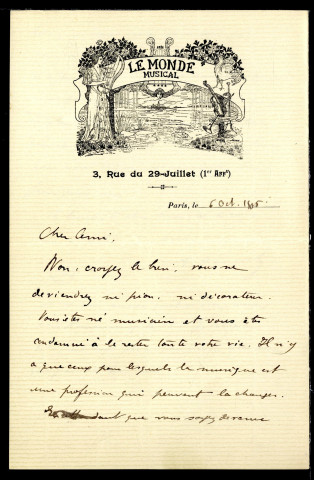 LE MONDE
MUSICAL
3, Rue du 29-Juillet (1er Arrt)
Paris, le 6 Oct.
Cher Ami,
Non, croyez le bien, vous ne
deviendrez ni pion, ni décorateur.
Vous êtes né musicien et vous êtes
condamné à le rester toute votre vie. Il n'y
a que ceux pour lesquels la musique est
une profession qui peuvent la changer.
que vous soyez devenu